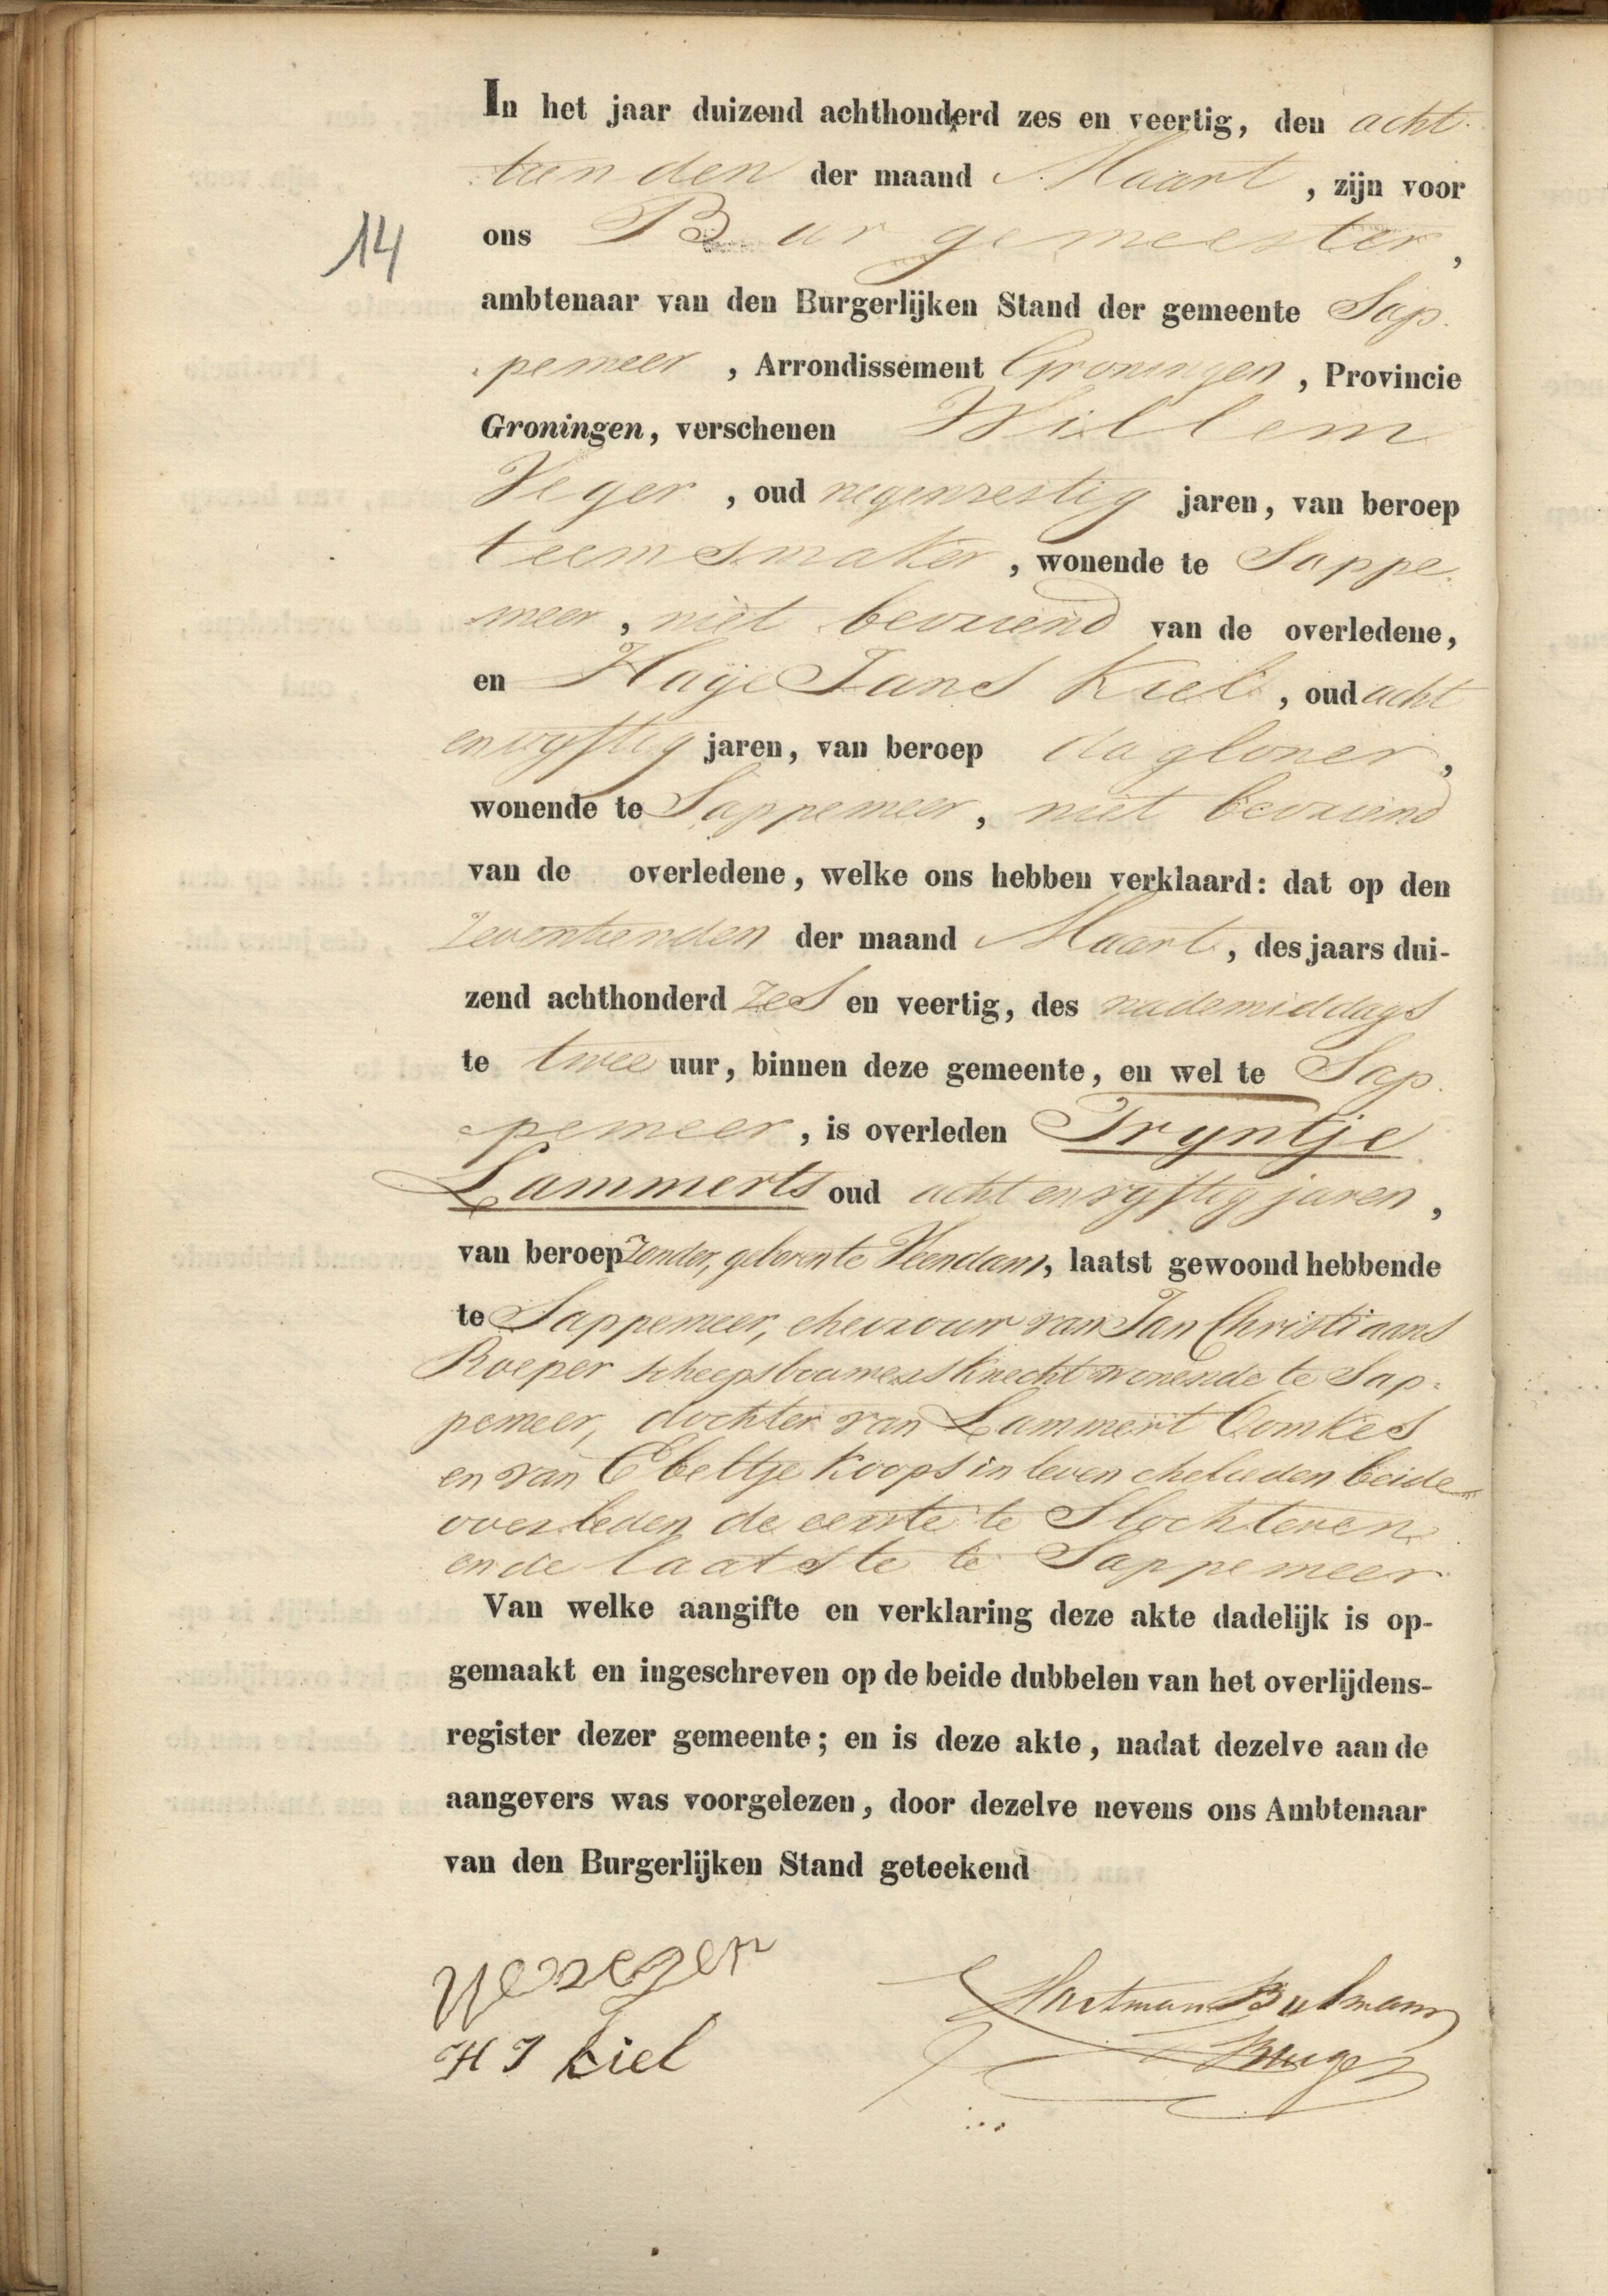 In het jaar duizend achthonderd zes en veertig, den acht
tienden der maand Maart, zijn voor
14
ons Burgemeester,
ambtenaar van den Burgerlijken Stand der gemeente Sap
pemeer, Arrondissement Groningen, Provincie
Groningen, verschenen Willem
Veger, oud negenzestig jaren, van beroep
teemsmaker, wonende te Sappe
meer, niet bevriend van de overledene,
en Haije Jans Kiel, oud acht
envyftig jaren, van beroep dagloner,
wonende te Sappemeer, niet bevriend
van de overledene, welke ons hebben verklaard: dat op den
Zeventienden der maand Maart, des jaars dui-
zend achthonderd Zes en veertig, des nademiddags
te twee uur, binnen deze gemeente, en wel te Sap
pemeer, is overleden Tryntje
Lammerts oud acht envyftig jaren,
van beroep Zonder, geboren te Veendam, laatst gewoond hebbende
te Sappemeer, ehevrouw van Jan Christiaans
Roeper scheepsbouwersknecht wonende te Sap-
pemeer, dochter van Lammert Comkes
en van Ebeltje Koops in leven ehelieden beide
overleden de eerste te Slochteren
en de laatste te Sappemeer
Van welke aangifte en verklaring deze akte dadelijk is op-
gemaakt en ingeschreven op de beide dubbelen van het overlijdens-
register dezer gemeente; en is deze akte, nadat dezelve aan de
aangevers was voorgelezen, door dezelve nevens ons Ambtenaar
van den Burgerlijken Stand geteekend
W veger
H J kiel
Hartman Bulmann
Burgr